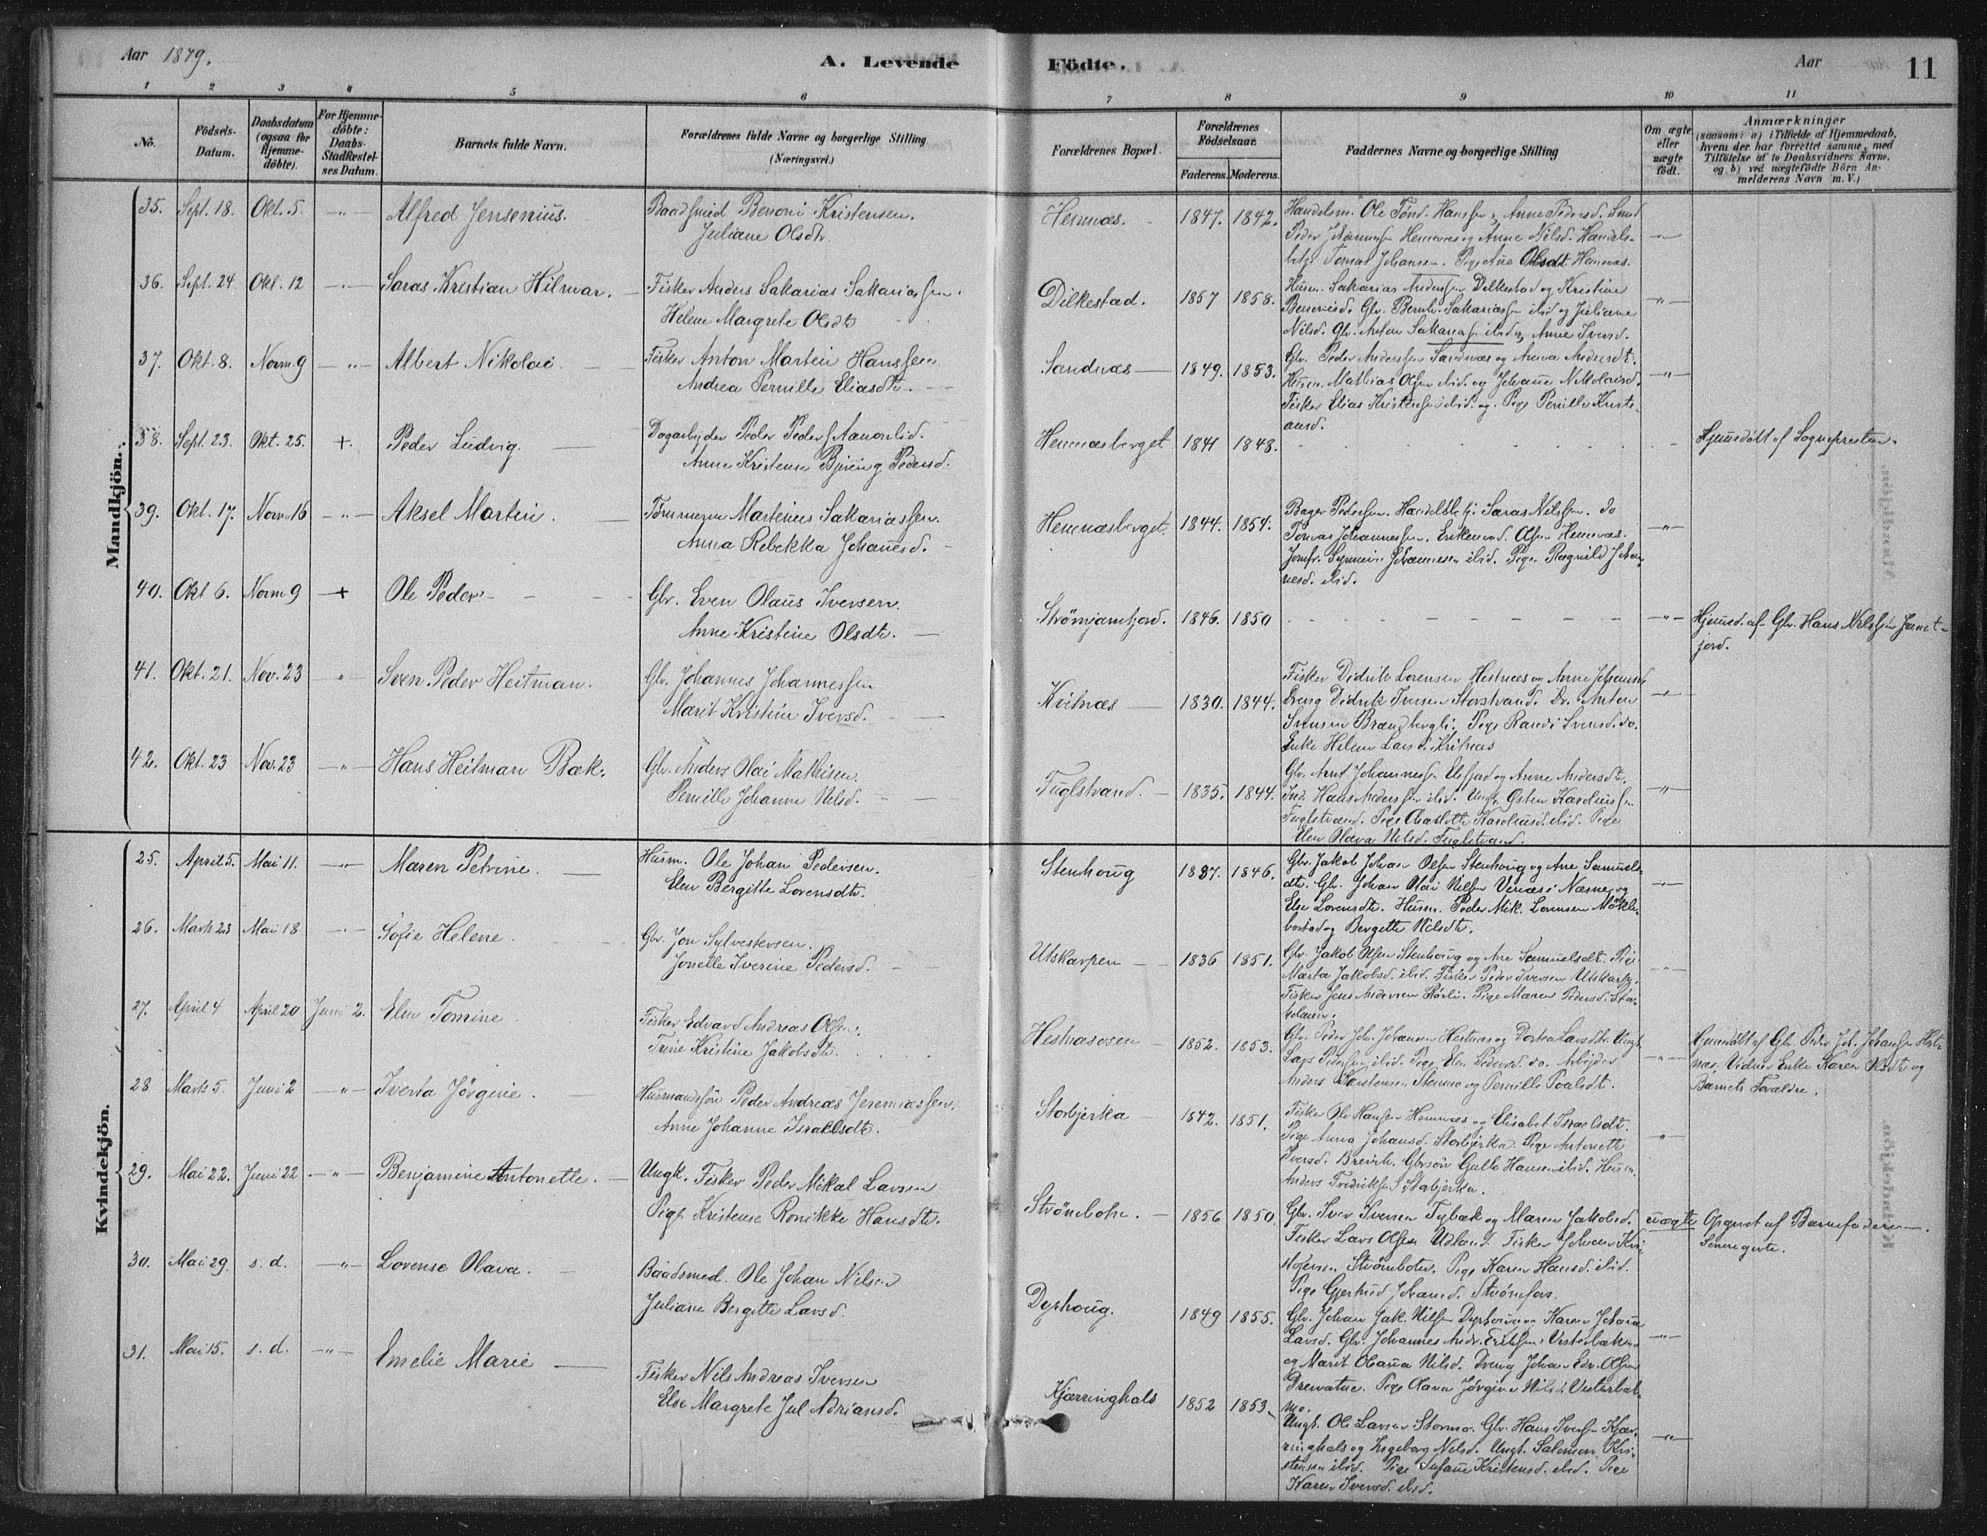 Aar 1879.
A. Levende
Födte.
Aar
11
1 2 3 4 5 6 7 8 9 10 11
No.
Födsels-
Datum.
Daabsdatum
(ogsaa for
Hjemme-
döbte).
For Hjemme-
döbte:
Daabs-
Stadfæstel-
ses Datum.
Barnets fulde Navn.
Forældrenes fulde Navne og borgerlige Stilling
(Næringsvei.)
Forældrenes Bopæl.
Forældrenes
Födselsaar.
Faderens. Moderens.
Faddernes Navne og borgerlige Stilling
Om ægte
eller
uægte
födt.
Anmærkninger
(saasom: a) i Tilfælde af Hjemmedaab,
hvem der har forrettet samme, med
Tilföielse af to Daabsvidners Navne,
og b) ved uægtefödte Börn An-
melderens Navn m. V.)
Mandkjön.
35. Sept. 18. Okt. 5 -"- Alfred Jensenius. Baadsmed Benoni Kristensen.
Juliane Olsdtr.
Hemnæs. 1847. 1842. Handelsm. Ole Tönd. Hanssen, Anne Pedersd. Smed
Peder Johannessen Hemnæs og Anne Nilsd. Handels-
betj. Tomas Johansen. Pige Ane Olsdt Hemnæs.
36. Sept. 24 Okt. 12 -"- Saras Kristian Hilmar. Fisker Anders Sakarias Sakariassen.
Helene Margrete Olsdt
Dilkestad. 1857 1858. Husm. Sakarias Anderssen Dilkestad og Kristine
Benonisd. Gbr. Bernh. Sakariassen ibid og Juliane
Nilsd. Gbr. Anton Sakariassen ibid og Anne Iversd.
37. Okt. 8. Novm. 9 -"- Albert Nikolai Fisker Anton Martin Hanssen
Andrea Pernille Eliasdt.
Sandnæs 1849. 1853. Gbr. Peder Anderssen Sandnæs og Anna Andersdt.
Husm. Mathias Olsen ibid. og Johanne Nikolaisd.
Fisker Elias Kristensen ibid. og Pige Pernille Kristi-
ansd.
38. Sept. 23. Okt. 25. + Peder Ludvig. Dagarbejder Peder Pederssen Aanonlid.
Anne Kristense Bjring Pedersd.
Hemnæsberget 1841 1848. Hjemdöbt af Sognepresten.
39. Okt. 17. Novm 16 -"- Aksel Martin. Tömmerm Martinus Sakariassen.
Anna Rebekka Johansd.
Hemnæsberget. 1844. 1854. Bager Pedersen. Handelsbetj. Saras Nilssen. do
Tomas Johannessen. Enkemad. Olsen Hemnæs.
Jomfr. Synneve Johannessen ibid. Pige Ragnild Johan-
nesd. ibid.
40. Okt 6. Novm 9 + Ole Peder Gbr. Even Olaus Iversen.
Anne Kristine Olsdt.
Strömjamfjord. 1846. 1850 -"- Hjemd. af Gbr. Hans Nilssen Jamt-
jord.
41. Okt. 21. Nov. 23 " Sven Peder Heitman. Gbr. Johannes Johannessen
Marit Kristine Iversd.
Kvitnæs 1830. 1844. Fisker Didrik Lorensen Hestnæs og Anne Johansd.
Dreng Didrik Iversen Storstrand. Dr. Anton
Svensen Brandbogli, Pige Randi Svensd. do.
Enke Helene Larsd. Kvitnæs
42. Okt. 23 Nov. 23 -"- Hans Heitman Bæk. Gbr. Anders Olai Mathisen.
Pernille Johanne Nilsd.
Fuglstrand. 1835. 1844. Gbr. Arnt Johannessen Elsfjord og Anne Andersdt.
Ind. Hans Anderssen ibid. Ungk. Östen Karoliussen
Fuglstrand. Pige Charlotte Karoliusd. ibid. Pige
Elen Olava Nilsd. Fuglstrand.
Kvindekjön.
25. April 5. Mai 11. -"- Maren Petrine. Husm. Ole Johan Pedersen.
Elen Bergitte Lorensdtr.
Stenhoug 1837. 1846. Gbr. Jakob Johan Olsen Stenhoug og Ane Samuels-
dtr. Gbr. Johan Olai Nilsen Venæs i Næsne og
Else Lorensdtr. Husm. Peder Mik. Lorensen Mökle-
bostad og Bergette Nilsdtr.
26. Marts 23 Mai 18 Sofie Helene. Gbr. Jon Sylvestersen.
Jonette Iverine Pedersd.
Utskarpen 1836 1851. Gbr. Jakob Olsen Stenhoug og Ane Samuelsdt. Pige
Marta Jakobsd. ibid. Fisker Peder Iversen Utskarp.
Fisker Jens Andersen Rörli. Pige Maren Pedersd.
27. April 4 April 20 Juni 2. Elen Tomine Fisker Edvard Andreas Olsen.
Trine Kristine Jakobsdt.
Hestnæsosen 1852. 1853. Gbr. Peder Joh. Johansen Hestnæs og Dorte Larsdtr. Ungk.
Lars Pedersen ibid. Pige Elen Pedersd. do. Arbejder
Anders Torstensen Stenmo og Pernille Paalsdt.
Hjemdöbt af Gbr. Peder Joh. Johansen Hest-
næs, Vidner Enke Karen Olsdt og
Barnets Forældre.
28 Marts 5 Juni 2 " Iverta Jörgine. Husmandssön Peder Andreas Jeremiassen.
Anne Johanne Israelsdt.
Storbjerka 1842. 1851. Fisker Ole Hansen Hemnæs og Elisabet Israelsdt.
Pige Anna Johansd. Storbjerka Pige Antonette
Iversd. Brevik. Gbrsön Gulle Hansen ibid. Husm.
Anders Fredriksen Storbjerka.
29. Mai 22. Juni 22 -"- Benjamine Antonette. Ungk. Fisker Peder Mikal Larsen
Pige Kristense Ronikke Hansdtr.
Strömbotn. 1856 1850. Gbr. Iver Iversen Tybæk og Maren Jakobsd.
Fisker Lars Olsen Utland. Fisker Johan Kri-
stofersen Strömboten. Pige Karen Hansd. ibid.
Pige Gjertrud Johansd. Strömfors.
uægte Opgivet af Barnefaderen
30. Mai 29. s. d. -"- Lorense Olava. Baadsmed. Ole Johan Nilsen
Juliane Bergette Larsd.
Dyrhoug. 1849 1855. Gbr. Johan Jak. Nilsen Dyrhoug og Karen Johanna
Larsd. Gbr. Johannes Andr. Eriksen Vesterbakmo
og Marit Olaua Nilsd. Dreng Johan Edv. Olsen
Drevatne. Pige Olava Jörgine Nilsd. Vesterbak-
mo.
31. Mai 15. s. d. -"- Emelie Marie Fisker Nils Andreas Iversen
Else Margrete Jul Adriansd.
Kjærringhals 1852 1853 Ungk. Ole Larsen Stormo. Gbr. Hans Iversen Kjær-
ringhals og Ingeborg Nilsd. Ungk. Salomon Kri-
stensen ibid. Pige Susanne Kristensd. ibid. Pige
Karen Iversd. ibid.